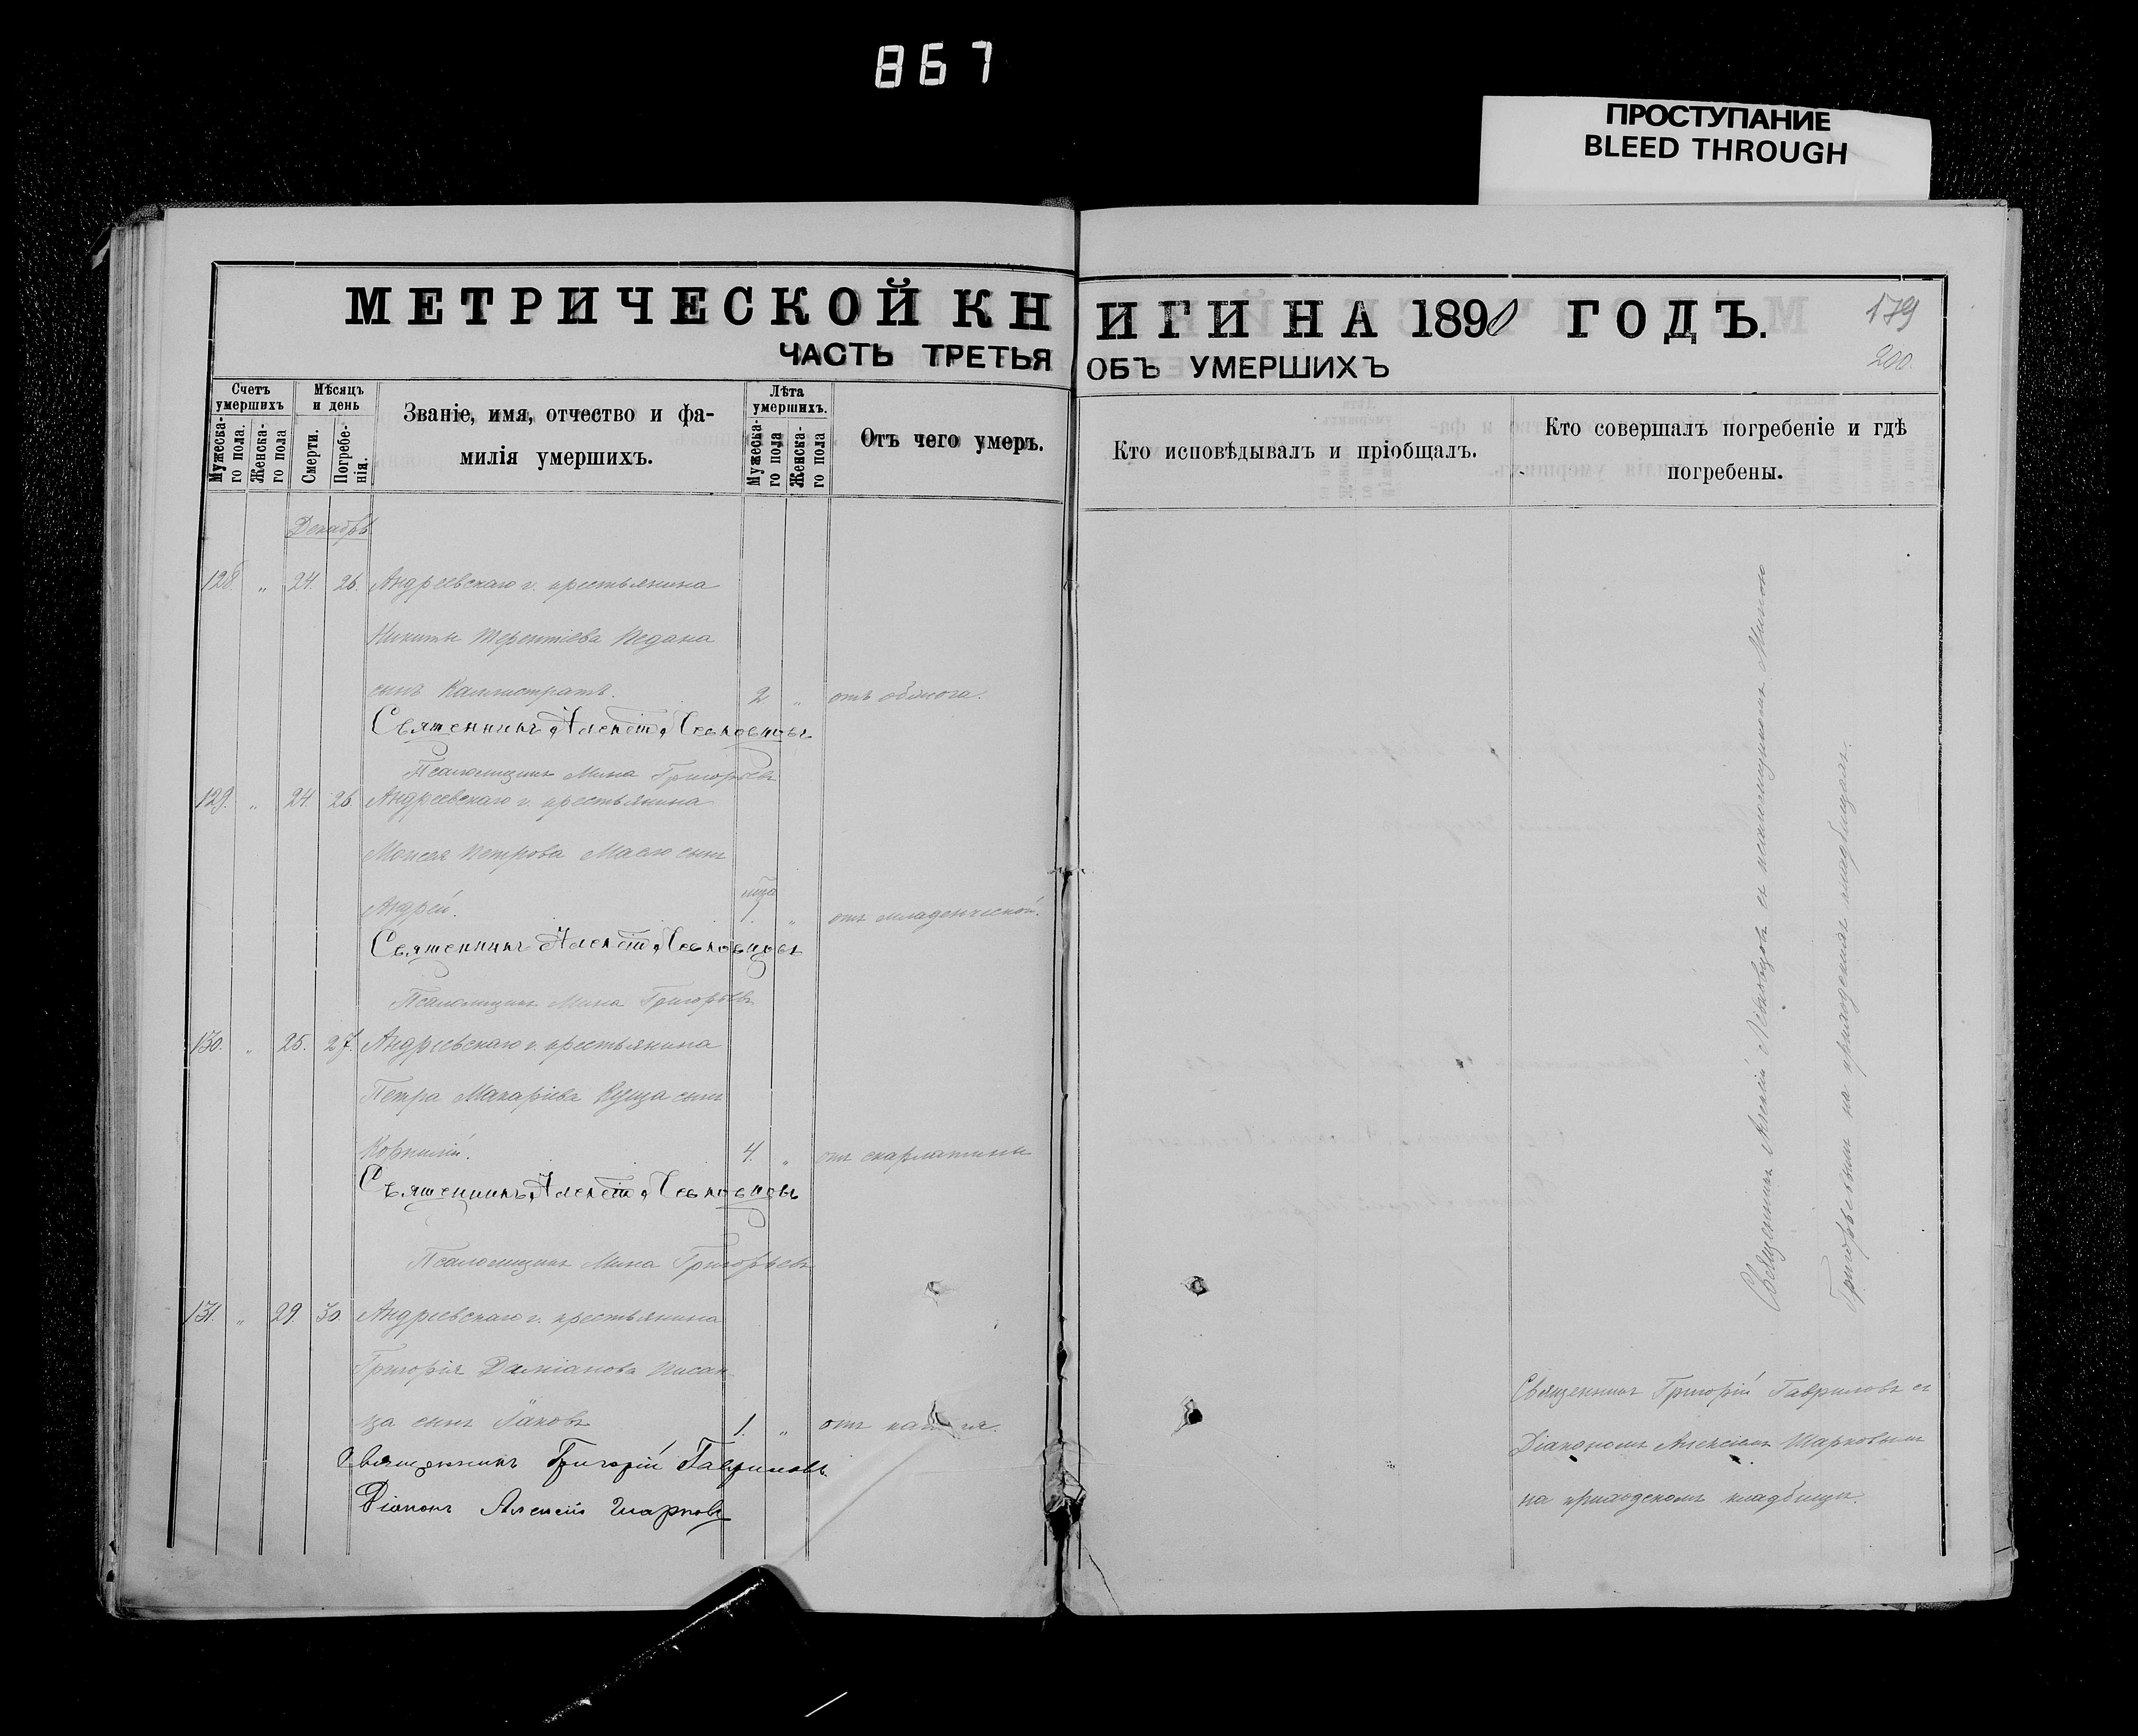 867
ПРОСТУПАНИЕ
BLEED THROUGH
МЕТРИЧЕСКОЙ КНИГИ НА 1890 ГОДЪ.
179
200.
ЧАСТЬ ТРЕТЬЯ ОБЪ УМЕРШИХЪ
Счетъ умершихъ
Мужеска-го пола.
Женска-го пола
Мѣсяцъ и день
Смерти.
Погребе-нія.
Званіе, имя, отчество и фа-
милія умершихъ.
Лѣта умершихъ.
Мужеска-го пола
Женска-го пола
Отъ чего умеръ.
Кто исповѣдывалъ и пріобщалъ.
Кто совершалъ погребеніе и гдѣ
погребены.
Декабрь
128. „ 24. 26. Андреевскаго г. крестьянина
Никиты Терентіева Педана
сынъ Каллистратъ. 2 „
Священникъ Алексій Левковцовъ
Псаломщикъ Мина Григорьевъ
129. „ 24. 26 Андреевскаго г. крестьянина
Моисея Петрова сынъ
Андрей. 1. „ отъ младенческой.
Священникъ Алексій Левковцовъ
Псаломщикъ Мина Григорьевъ
130. „ 25. 27. Андреевскаго г. крестьянина
Петра Макаріева Куца сынъ
Корнилій. 4. „ отъ скарлатины
Священникъ Алексій Левковцовъ
Псаломщикъ Мина Григорьевъ
131. „ 29. 30. Андреевскаго г. крестьянина
Григорія Даміанова Писан-
ца сынъ Іаковъ 1. „ отъ
Священникъ Григорій Гавриловъ
Діаконъ Алексій Шарковъ
Священникъ Алексій Левковцовъ съ псаломщикомъ Миною
Григорьевымъ на приходскихъ кладбищахъ.
Священникъ Григорій Гавриловъ съ
Діакономъ Алексіемъ Шарковымъ
на приходскомъ кладбищѣ.